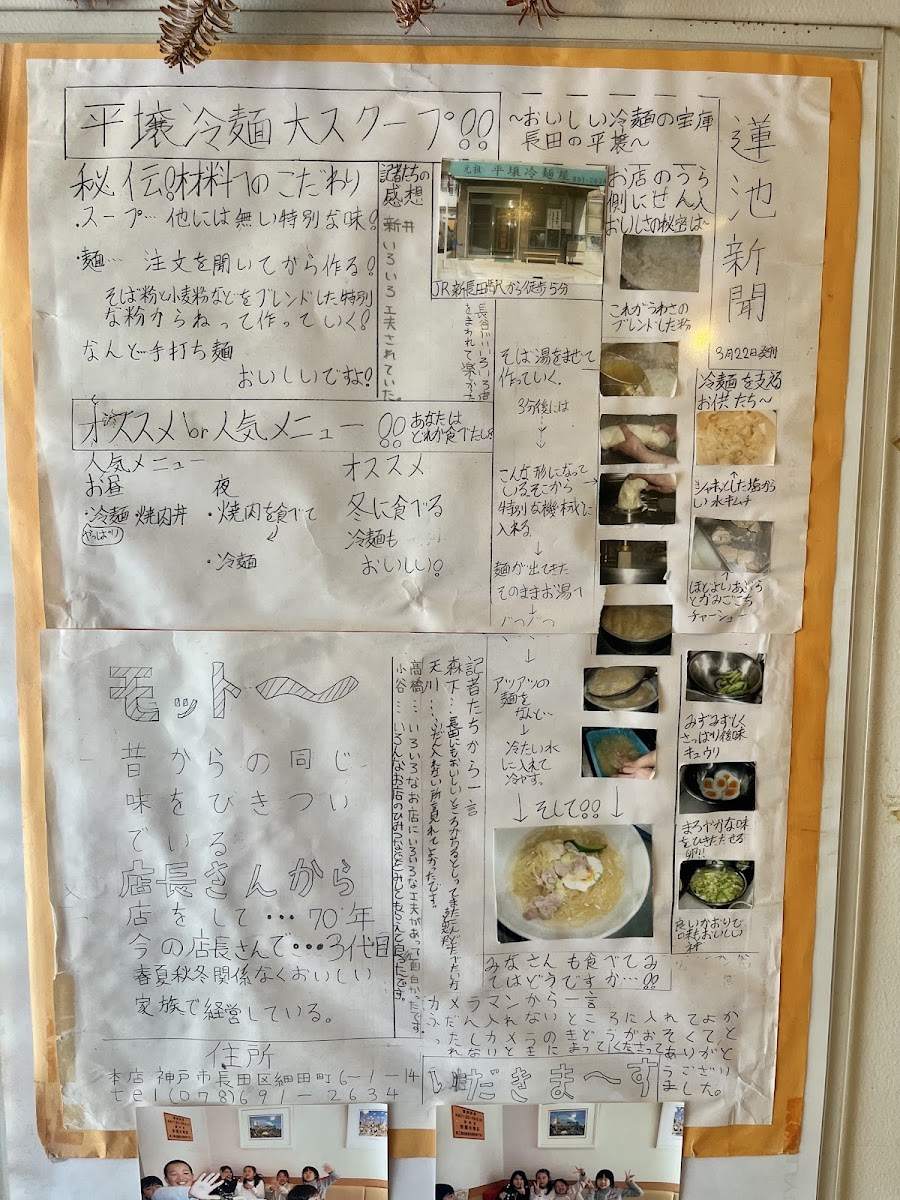 蓮池新聞
3月22日発刊
平壌冷麺大スクープ!!
〜おいしい冷麺の宝庫
長田の平壌〜
秘伝!材料へのこだわり
・スープ…他には無い特別な味!
・麺… 注文を聞いてから作る!
そば粉と小麦粉などをブレンドした特別
な粉からねって作っていく!
なんと手打ち麺
おいしいですよ!
記者たちの
感想
新井
いろいろ工夫されていた。
長谷川いろいろ店
をまわれて楽しかった
元祖 平壌冷麺屋
JR新長田駅から徒歩5分
お店のうら
側にせん入
おいしさの秘密は〜
これがうわさの
ブレンドした粉
そば湯をまぜて
作っていく。
3分後には
↓
こんな形になって
いるそこから→
特別な機材に
入れる
↓
麺が出てきた
そのままお湯へ
↓
ぐつぐつ
↓
アツアツの
麺を
なんと…
↓
冷たい水
に入れて
冷やす。
↓そして!!↓
みなさんも食べてみ
てはどうですか…!!
冷麺を支える
お供たち〜
↑
シャキッとした塩から
い水キムチ
↑
ほどよいあぶら
とかみごこち
チャーシュー
みずみずしく
さっぱり後味
キュウリ
まろやかな味
をひきだたせる
卵!!
良いかおりで
味もおいしい
オススメor人気メニュー!!
あなたは
どれが食べたい?
人気メニュー
お昼
・冷麺 焼肉丼
やっぱり
夜
・焼肉を食べて
・冷麺
オススメ
冬に食べる
冷麺も
おいしい!
モットー〜
昔からの同じ
味をひきつい
でいる
店長さんから
店をして…70年
今の店長さんで…3代目
春夏秋冬関係なくおいしい
家族で経営している。
記者たちから一言
森下…長田にもおいしいところがある
天川…ふだん入れない所を見れてよかったです。
高橋…いろいろなお店にいろいろな工夫があって面白かったです。
小谷…いろんなお店のひみつなど
カメラマンから一言
ふだん入れないところに入れてよか
ったしカメラのきどうがおそくてと
れないときにまってくださってありがと
うござい
ました。
住所
本店 神戸市長田区細田町6-1-14
tel(078)691-2634
いただきま〜す